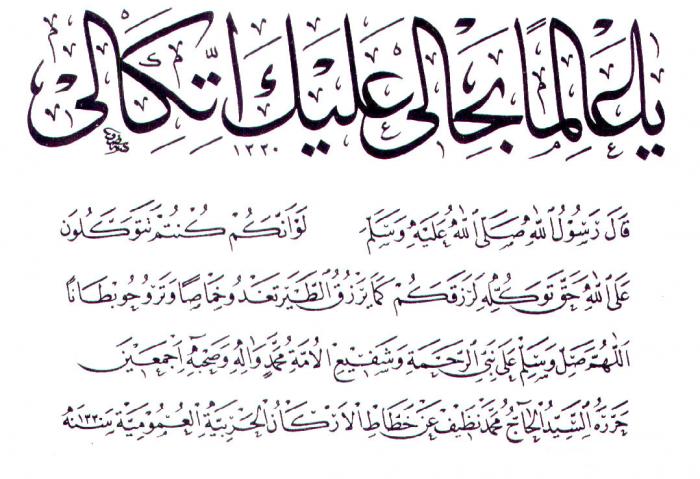 يا عالمًا بحالي عليك اتّكالي
١٣٣٠
قَالَ رَسُولُ اللهِ صَلَّى اللهُ عَلَيْهِ وَسَلَّمَ لَوْ اَنَّكُمْ كُنْتُمْ تَتَوَكَّلُونَ
عَلَى اللهِ حَقَّ تَوَكُّلِهِ لَرَزَقَكُمْ كَمَا يَرْزُقُ الطَّيْرَ تَغْدُو خِمَاصًا وَتَرُوحُ بِطَانًا
اَللّٰهُمَّ صَلِّ وَسَلِّمْ عَلَى نَبِيِّ الرَّحْمَةِ وَشَفِيعِ الْاُمَّةِ مُحَمَّدٍ وَاٰلِهِ وَصَحْبِهِ اَجْمَعِينَ
حَرَّرَهُ السَّيِّدُ الْحَاجُّ مُحَمَّدْ نَظِيفْ عَنْ خَطَّاطِ الْاَرْكَانِ الْحَرْبِيَّةِ الْعُمُومِيَّةِ سَنَة ١٣٣٠